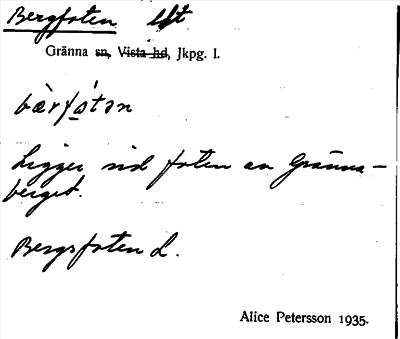 Bergfoten lgt
Gränna sn, Vista hd, Jkpg. l.
bèrfo̲tən
Ligger vid foten av Gränna-
berget.
Bergsfoten L.
Alice Petersson 1935.